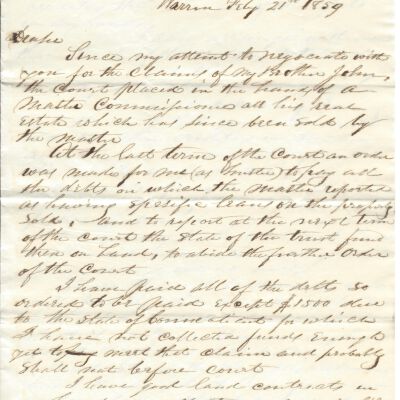 Warren Feby 21st 1859
Dr Sir
Since my attempt to negociate with
you for the claims of my Brother John,
the Court placed in the hands of a
Master Commissioner all his real
estate which has since been sold by
the Master
At the last term of the Court an order
was made for me (as trustee) to pay all
the debts on which the Master reported
as having specific leans on the property
sold, and to report at the next term
of the court the State of the trust fund
then on hand, to abide the further Order
of the Court
I have paid all of the debts so
ordered to be paid except $1500 due
to the State of Connecticut for which
I have not collected funds enough
yet to meet that claim and probably
shall not before court
I have good land contracts in